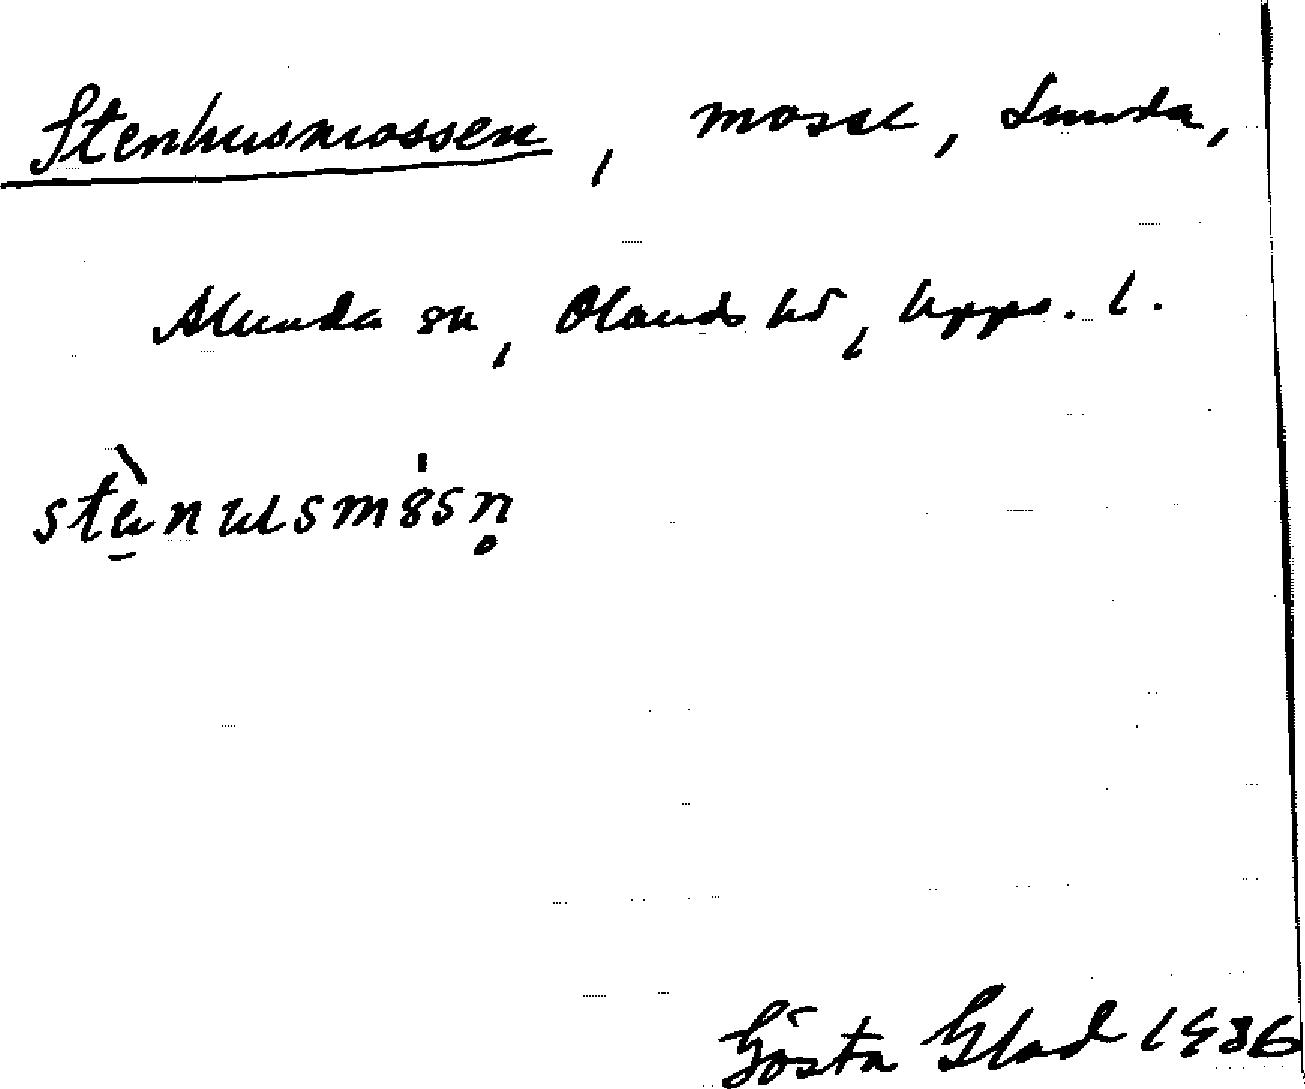 Stenhusmossen, mosse, Lunda,
Alunda sn, Olands hd, Upps. l.
Gösta Glad 1936